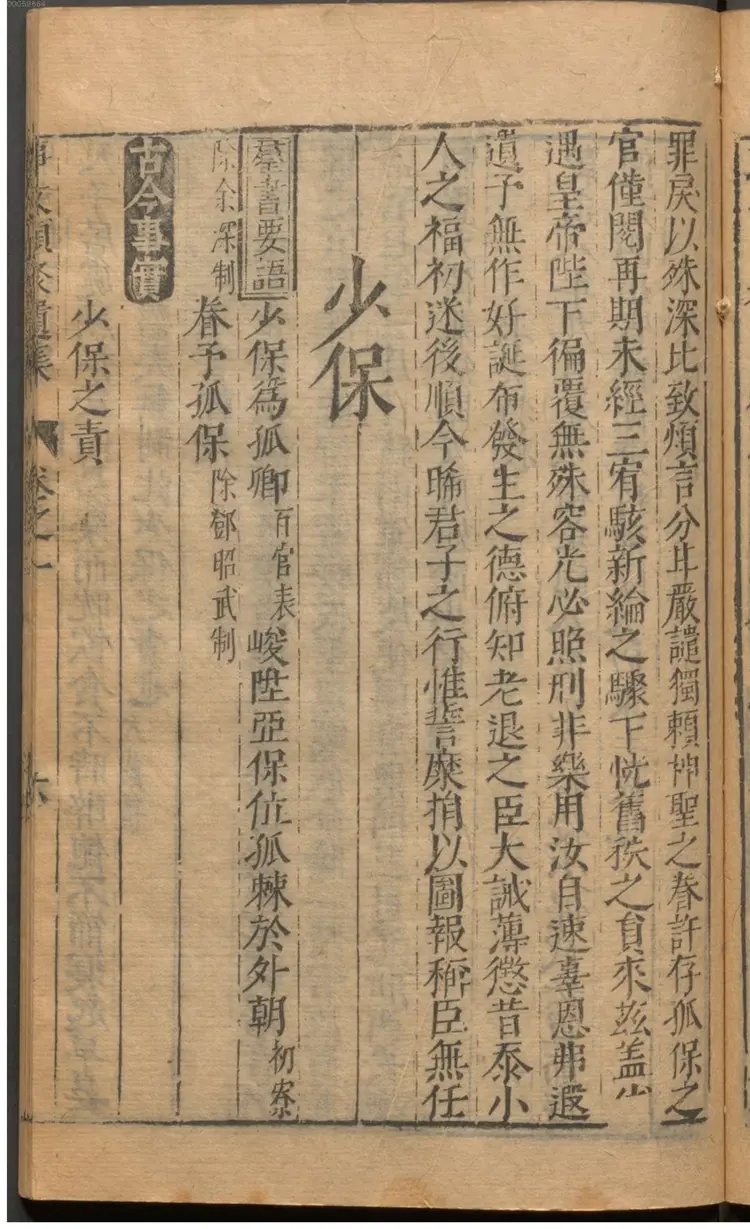 罪戾以殊深比致煩言分斗嚴譴獨賴神聖之眷許存孤保之
官僅閱再期未經三宥駭新綸之驟下恍舊秩之負來茲蓋
遇皇帝陛下徧覆無殊容光必照刑非樂用汝自速辜恩弗遐
遺予無作好誕布發生之德俯知老退之臣大誡薄懲昔忝小
人之福初迷後順今晞君子之行惟誓糜捐以圖報稱臣無任
少保
羣書要語 少保為孤卿 百官表 峻陞亞保位孤棘於外朝 初寮
除余深制 眷予孤保 除鄧昭武制
古今事實
少保之責
事文類聚遺集 卷之一 六
00058694